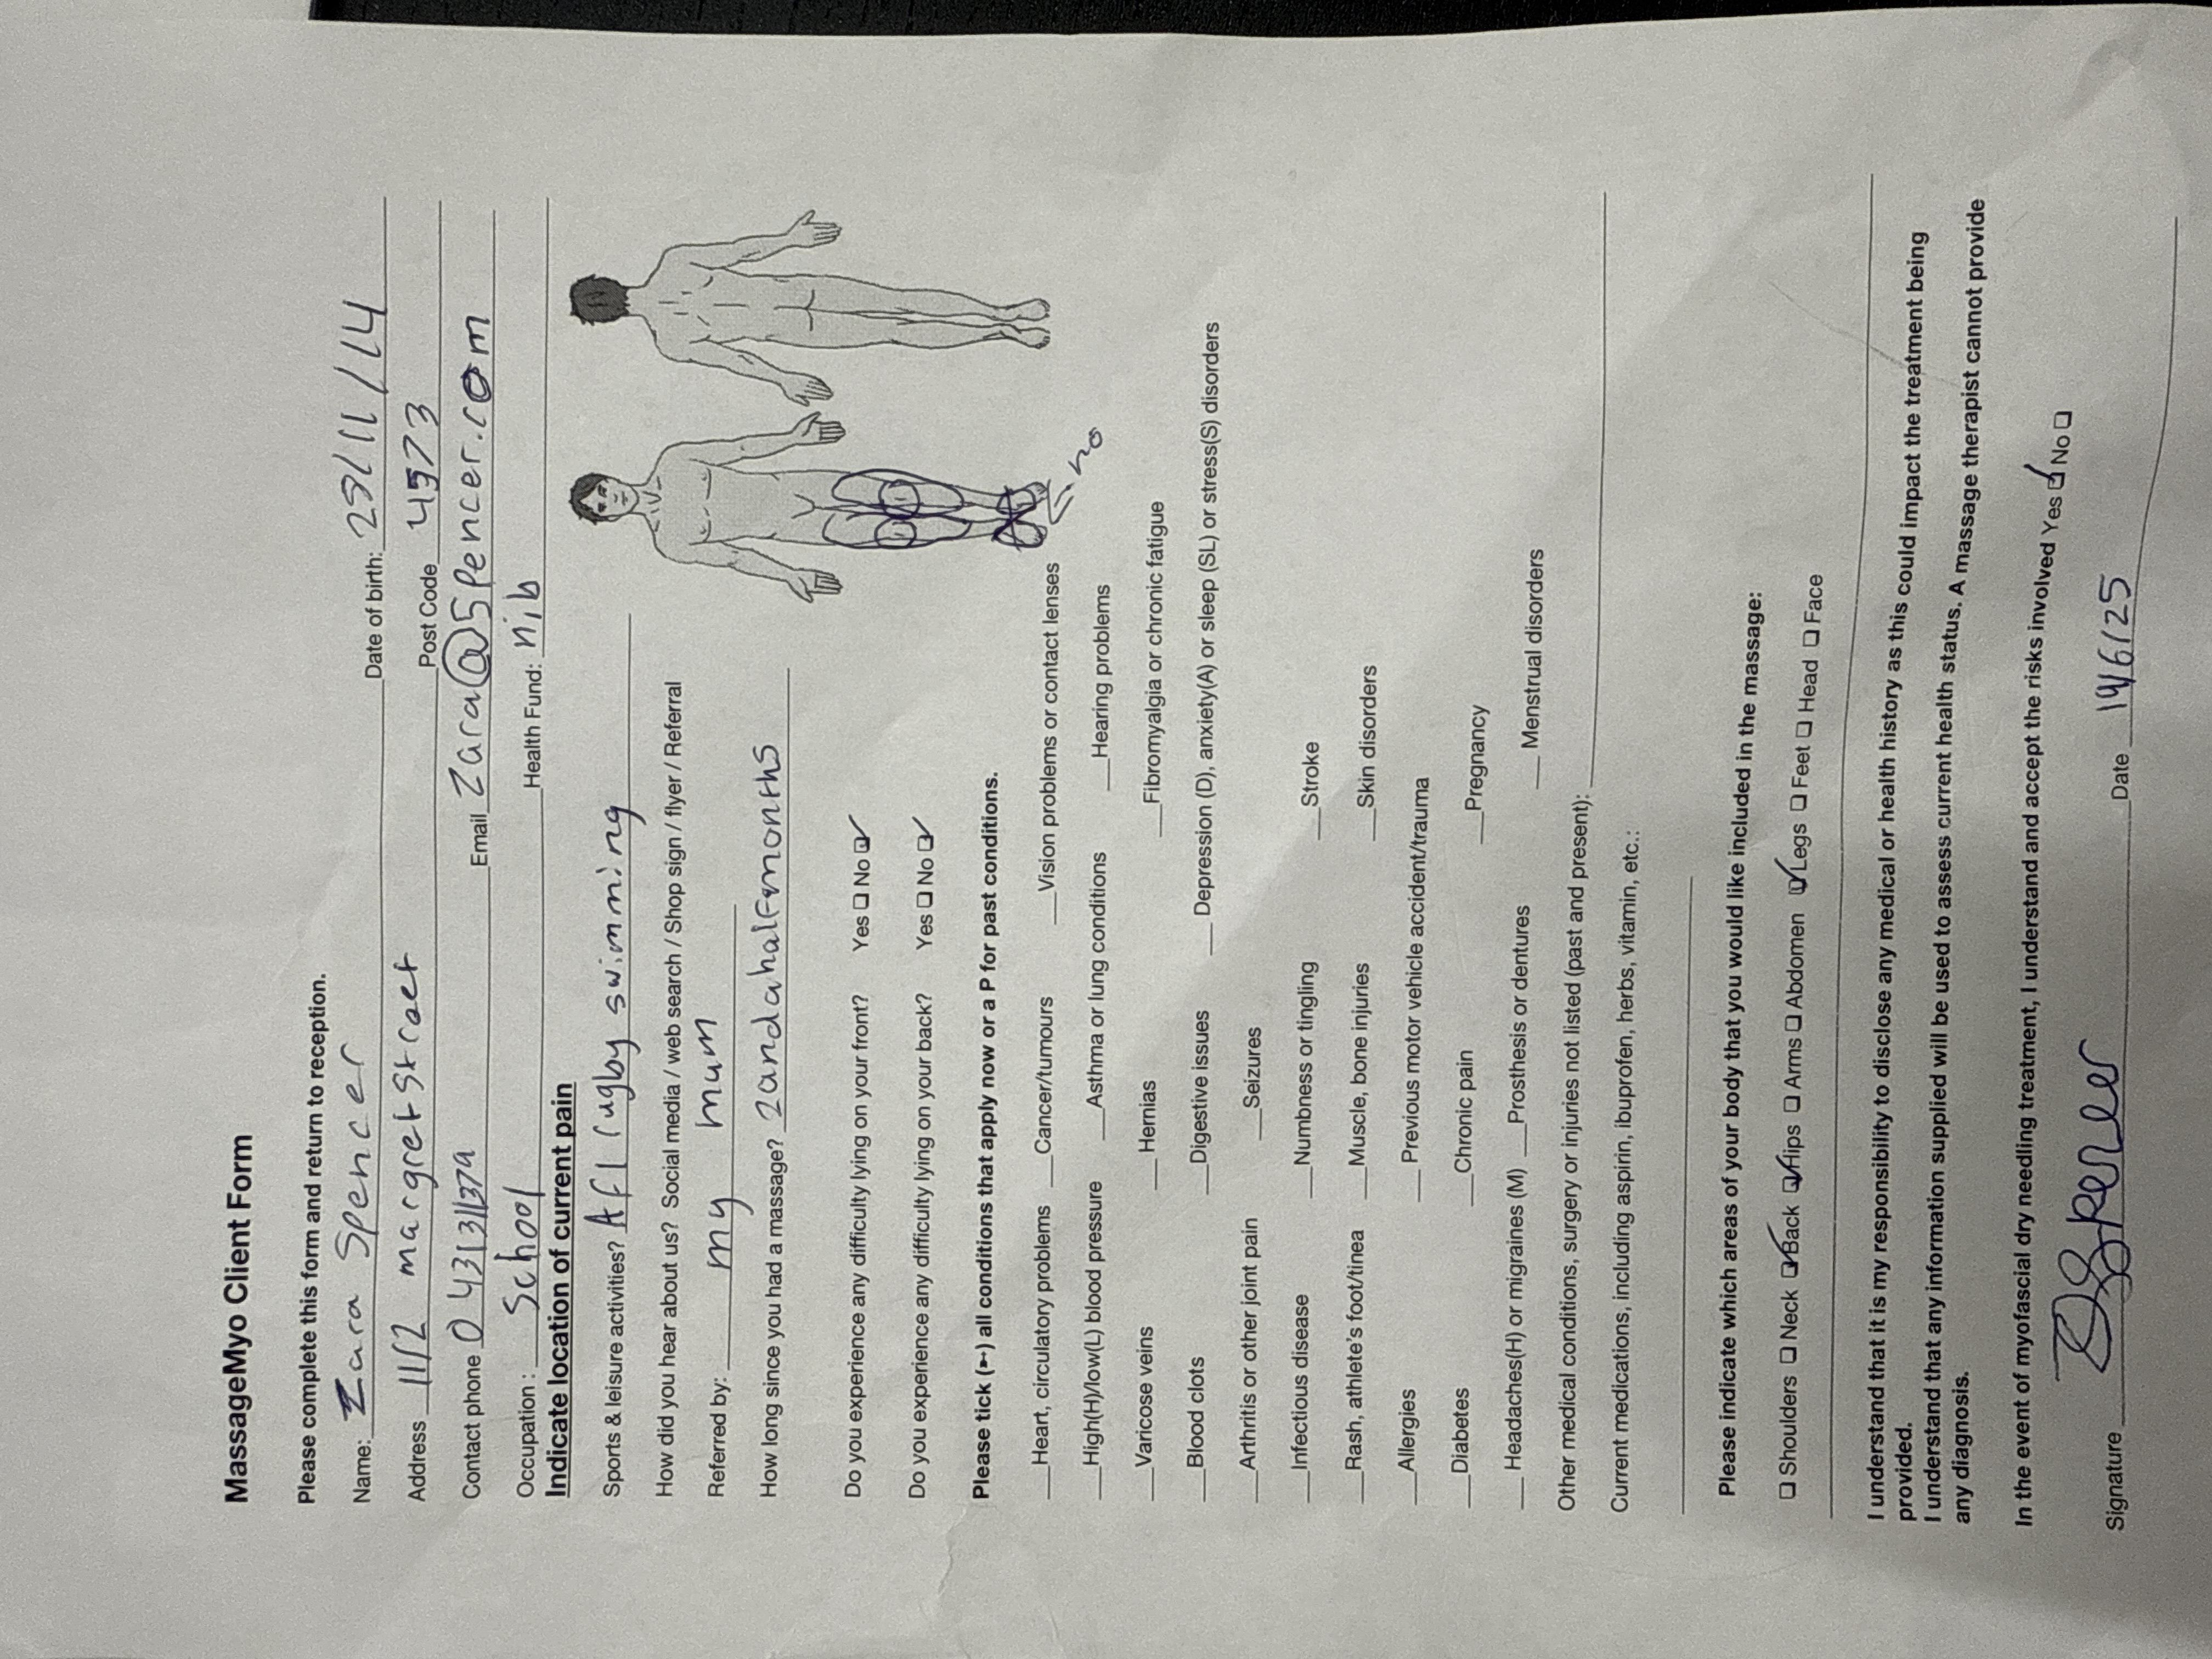 MassageMyo Client Form
Please complete this form and return to reception.
Name: Zara Spencer Date of birth: 29/11/14
Address 11/2 margret street Post Code 4573
Contact phone 0431311379 Email Zara@Spencer.com
Occupation : School Health Fund: nib
Indicate location of current pain
Sports & leisure activities? Afl rugby swimming
How did you hear about us? Social media / web search / Shop sign / flyer / Referral
Referred by: my mum
How long since you had a massage? 2 and a half months
no
Do you experience any difficulty lying on your front? Yes ☐ No ☑
Do you experience any difficulty lying on your back? Yes ☐ No ☑
Please tick (➵) all conditions that apply now or a P for past conditions.
__Heart, circulatory problems __Cancer/tumours __Vision problems or contact lenses
__High(H)/low(L) blood pressure __Asthma or lung conditions __Hearing problems
__Varicose veins __Hernias __Fibromyalgia or chronic fatigue
__Blood clots __Digestive issues __ Depression (D), anxiety(A) or sleep (SL) or stress(S) disorders
__Arthritis or other joint pain __Seizures
__Infectious disease __Numbness or tingling __Stroke
__Rash, athlete's foot/tinea __Muscle, bone injuries __Skin disorders
__Allergies __ Previous motor vehicle accident/trauma
__Diabetes __Chronic pain __Pregnancy
__ Headaches(H) or migraines (M) __Prosthesis or dentures __ Menstrual disorders
Other medical conditions, surgery or injuries not listed (past and present):
Current medications, including aspirin, ibuprofen, herbs, vitamin, etc.:
Please indicate which areas of your body that you would like included in the massage:
☐ Shoulders ☐ Neck ☑ Back ☑ Hips ☐ Arms ☐ Abdomen ☑ Legs ☐ Feet ☐ Head ☐ Face
I understand that it is my responsibility to disclose any medical or health history as this could impact the treatment being
provided.
I understand that any information supplied will be used to assess current health status. A massage therapist cannot provide
any diagnosis.
In the event of myofascial dry needling treatment, I understand and accept the risks involved Yes ☑ No ☐
Signature Spencer Date 19/6/25